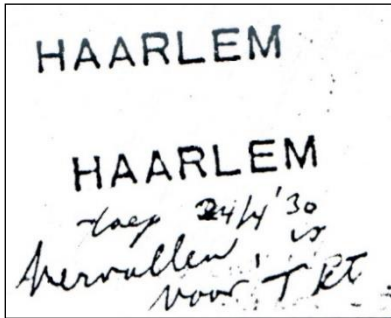 HAARLEM
HAARLEM
24/4 '30
Vervallen, is
voor T kt.